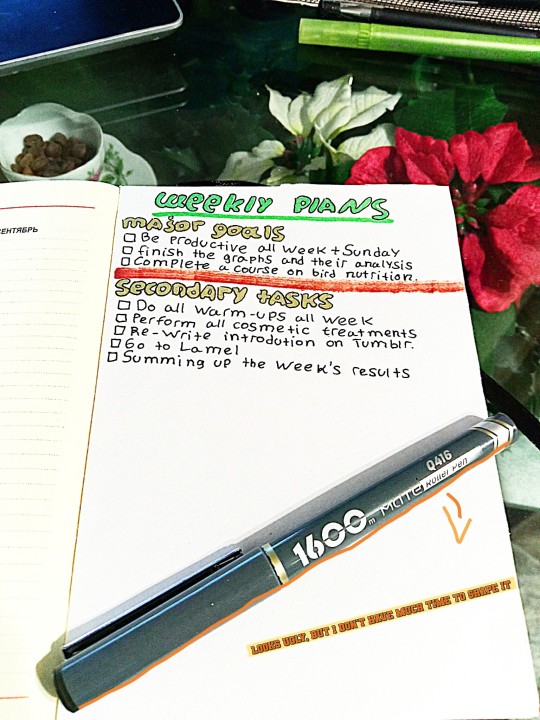 ЕНТЯБРЬ
WEEKLY PLANS
major goals
Be productive all week + Sunday
finish the graphs and their analysis
Complete a course on bird nutrition.
secondary tasks
Do all warm-ups all week
Perform all cosmetic treatments
Re-write introdution on Tumblr.
Go to Lamel
Summing up the week's results
Q416
1600m MATE Roller Pen
LOOKS UGLY, BUT I DON'T HAVE MUCH TIME TO SHAPE IT